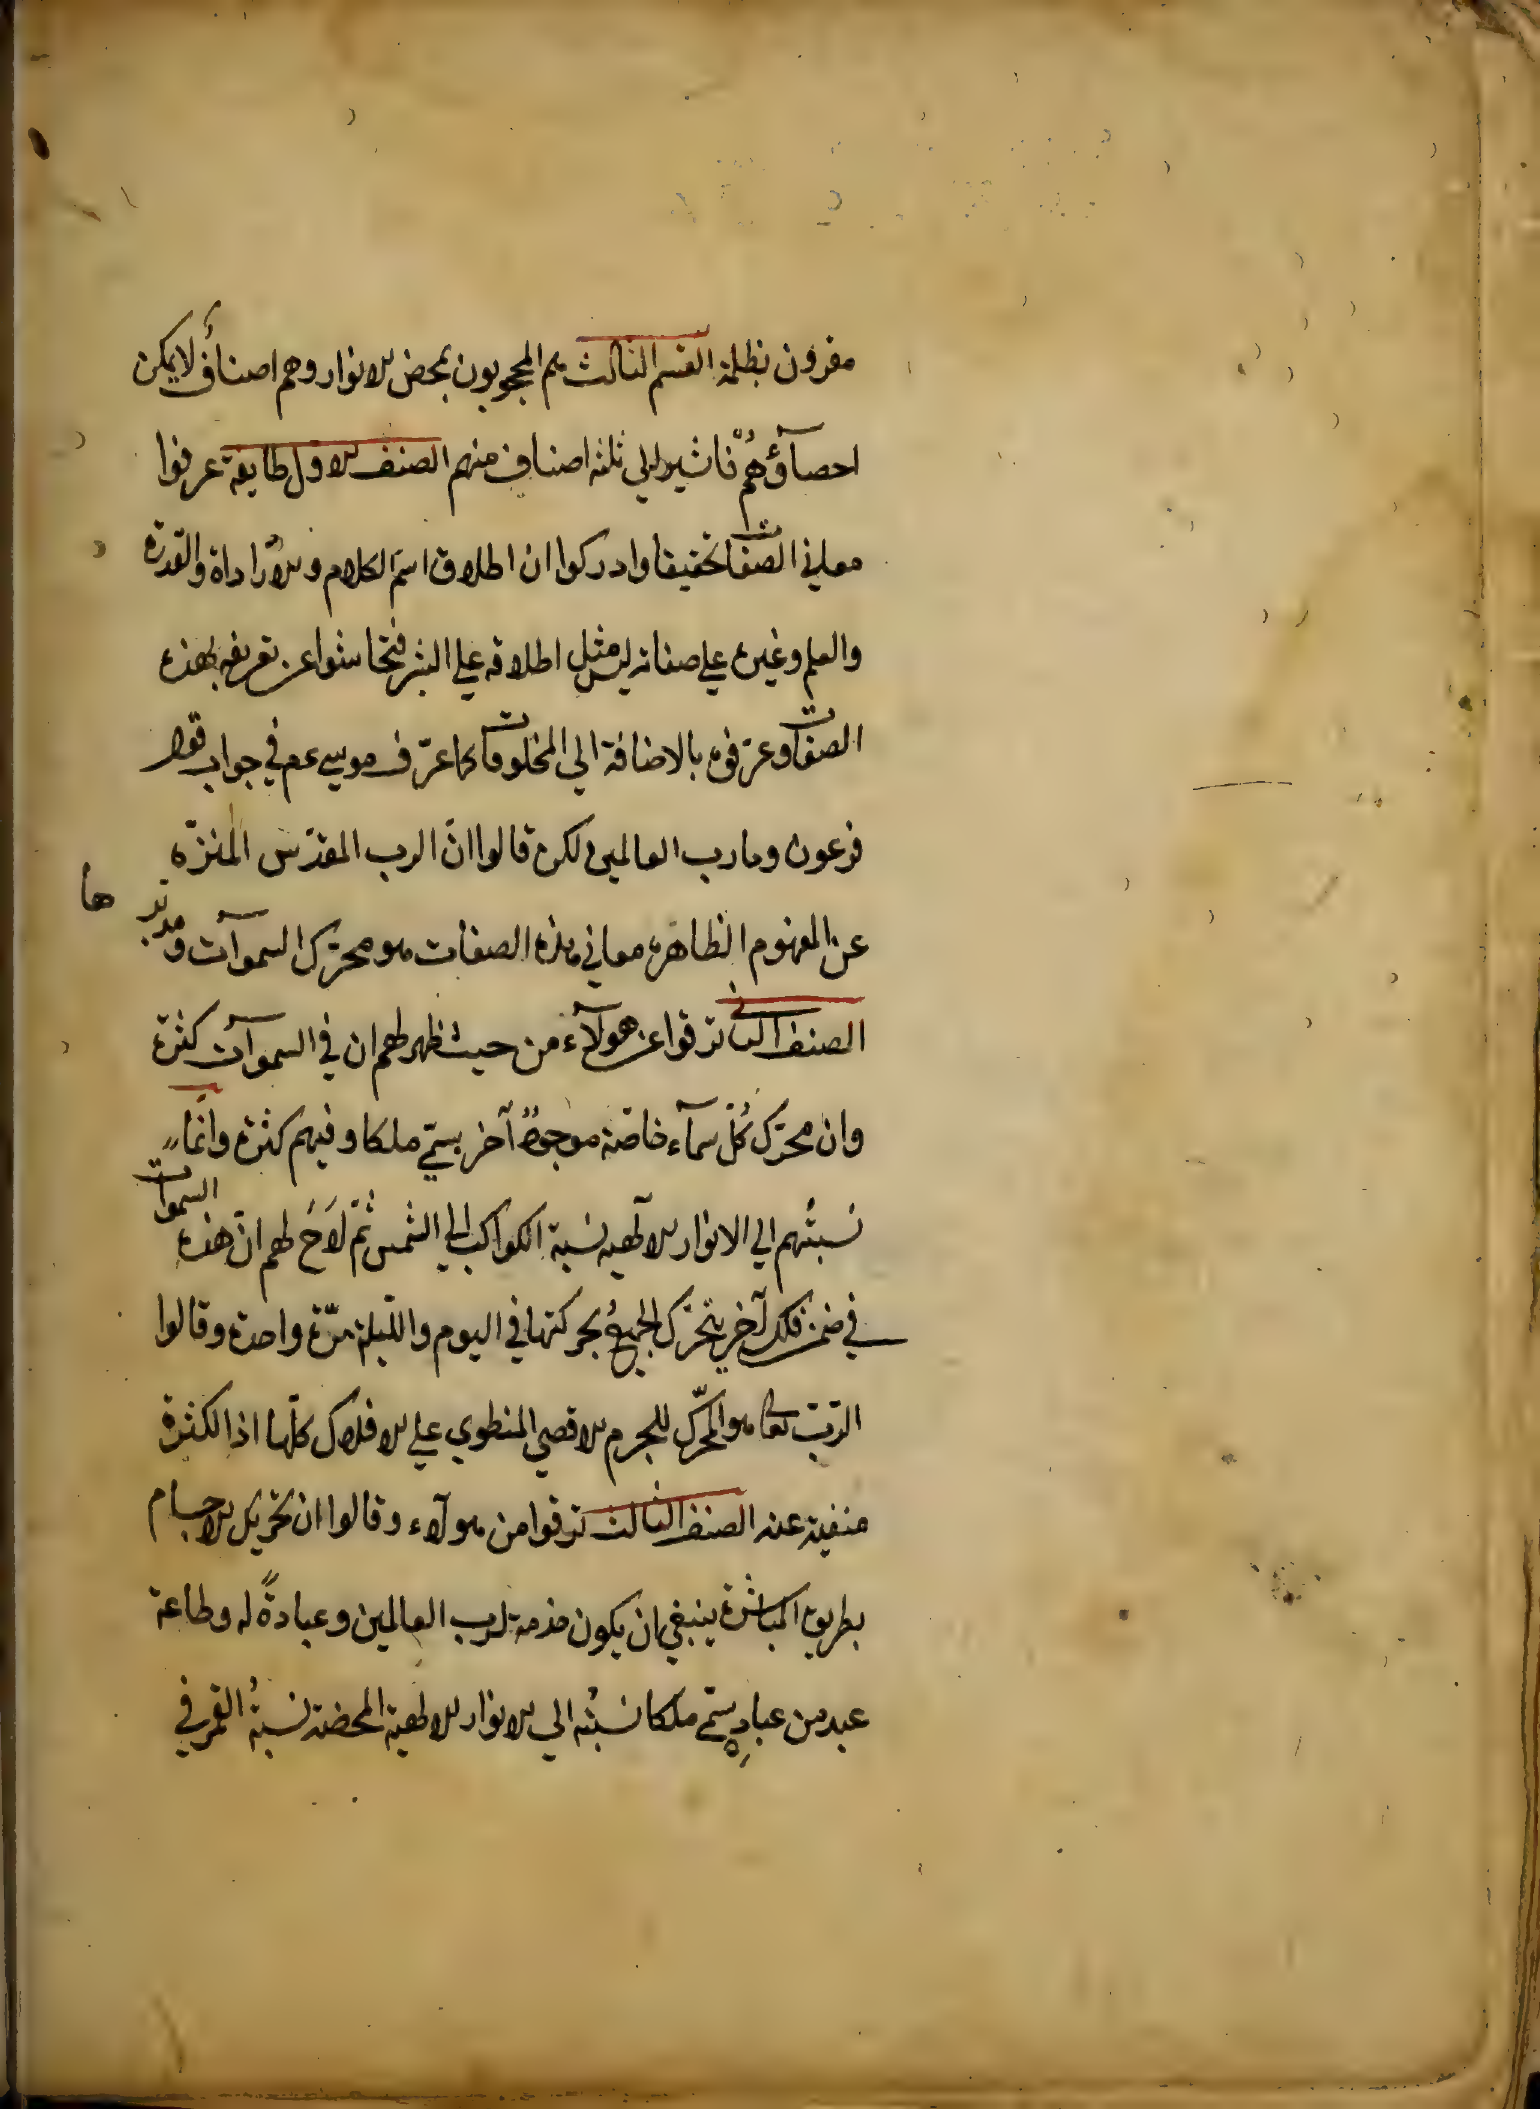 مقرون بظلمة القسم الثالث هم المحجوبون بمحض الانوار وهم اصناف لا يمكن
احصآؤهم فاشير الى ثلثة اصناف منهم الصنف الاول طايفة عرفوا
معاني الصفات تحقيقا وادركوا ان اطلاق اسم الكلام والارادة والقدرة
والعلم وغيره على صفاته ليس مثل اطلاقه على البشر فتحاشوا عن تعريفه بهذه
الصفات وعرفوه بالاضافة الى المخلوقات كما عرّف موسى عم في جواب قول
فرعون وما رب العالمين لكن قالوا انّ الرب المقدّس المنزّه
عن المفهوم الظاهر معاني هذه الصفات هو محرّك السموآت ومدبرها
الصنف الثاني ترقوا عن هولآء من حيث ظهر لهم ان في السموآت كثرة
وان محرّك كلّ سمآء خاصّة موجودٌ آخر يسمّى ملكا وفيهم كثرة وانّما
نسبتُهم الى الانوار الالهية نسبة الكواكب الى الشمس ثمّ لاَحَ لهم انّ هذه السموات
في ضمن فلك آخر يتحرّك الجميعُ بحركتها في اليوم واللّيلة مرّة واحدة وقالوا
الربّ تعا هو المحرّك للجرم الاقصي المنطوي على الافلاك كلّها اذ الكثرة
منفية عنه الصنف الثالث ترقوا من هولآء وقالوا ان تحريك الاجسام
بطريق المباشرة ينبغي ان يكون خدمة لرب العالمين وعبادةً له وطاعة
عبد من عباده يسمّى ملكا نسبتُه الى الانوار الالهية المحضة نسبةُ القمر في